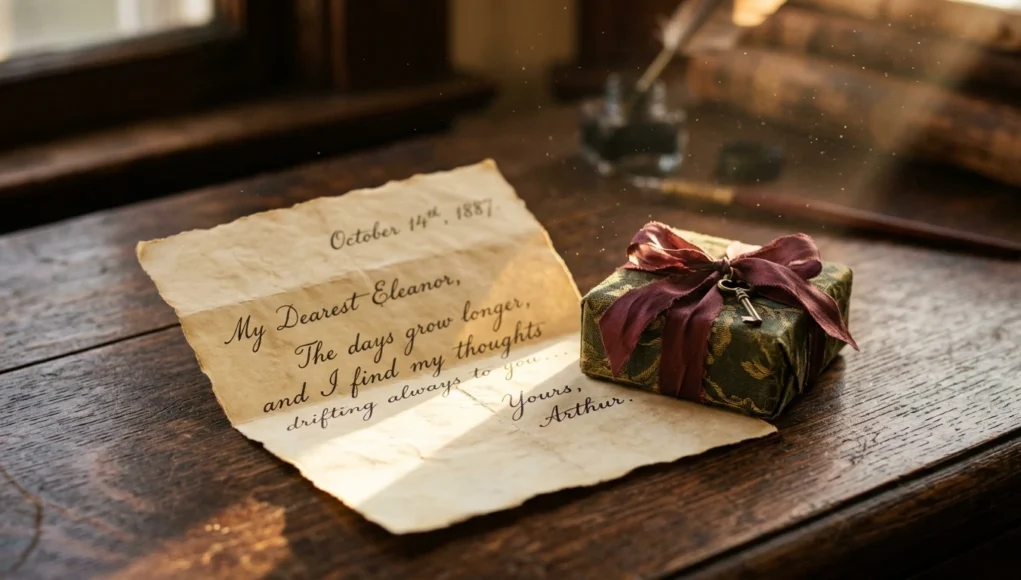 October 14th, 1887.
My Dearest Eleanor,
The days grow longer,
and I find my thoughts
drifting always to you...
Yours,
Arthur.